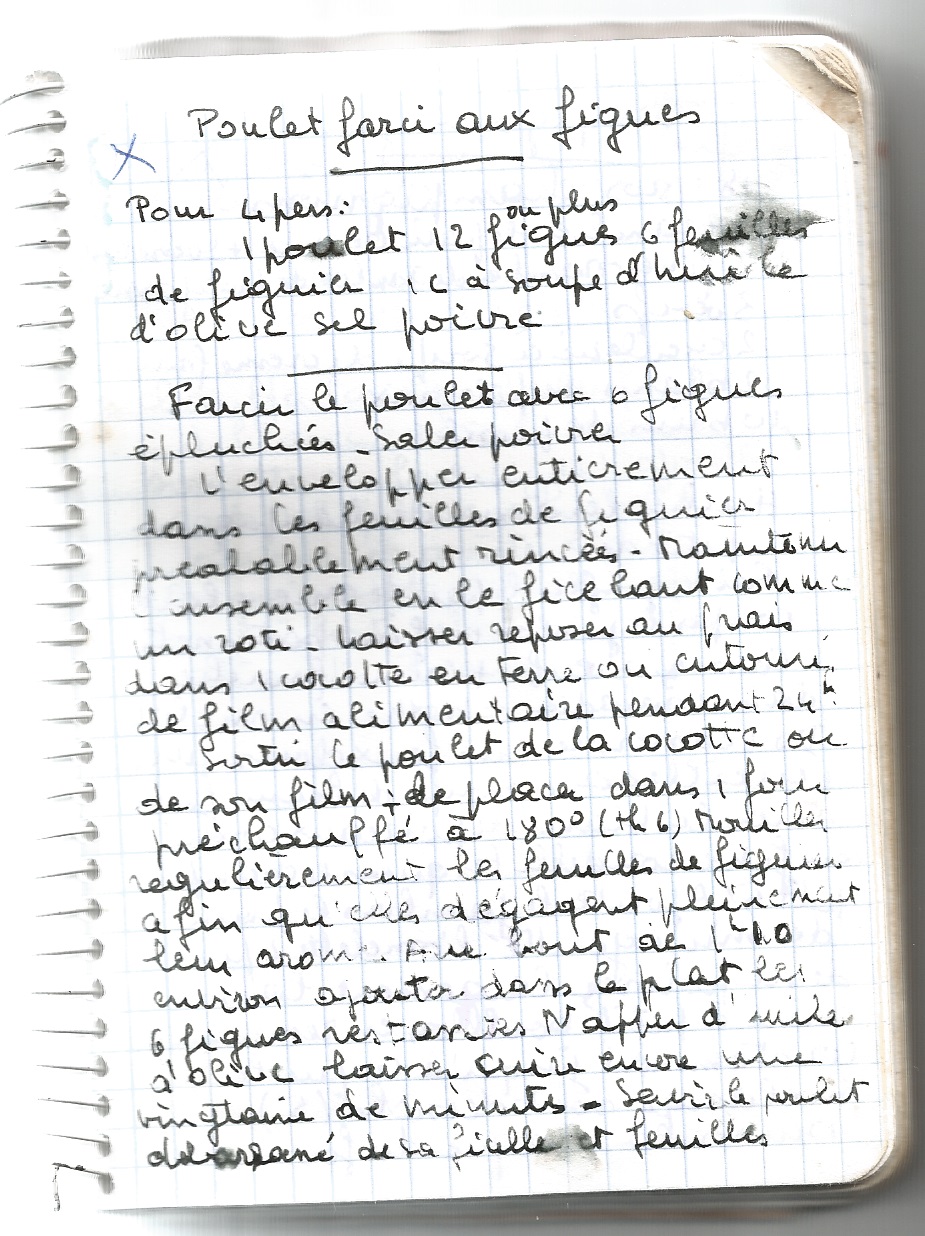 Poulet farci aux figues
X
Pour 4 pers:
ou plus
1 poulet 12 figues 6 feuilles
de figuier 1 c à soupe d'huile
d'olive sel poivre
Farcir le poulet avec 6 figues
épluchées - Saler poivrer
L'envelopper entièrement
dans les feuilles de figuier
préalablement rincées - Maintenir
l'ensemble en le ficelant comme
un roti - Laisser reposer au frais
dans 1 cocotte en terre ou entouré
de film alimentaire pendant 24h
Sortir le poulet de la cocotte ou
de son film - le placer dans 1 four
préchauffé à 180° (th 6) Mouiller
regulièrement les feuilles de figuier
afin qu'elles dégagent pleinement
leur arome. Au bout de 1h10
environ ajouter dans le plat les
6 figues restantes Napper d'huile
d'olive laisser cuire encore une
vingtaine de minutes - Servir le poulet
débarassé de sa ficelle et feuilles